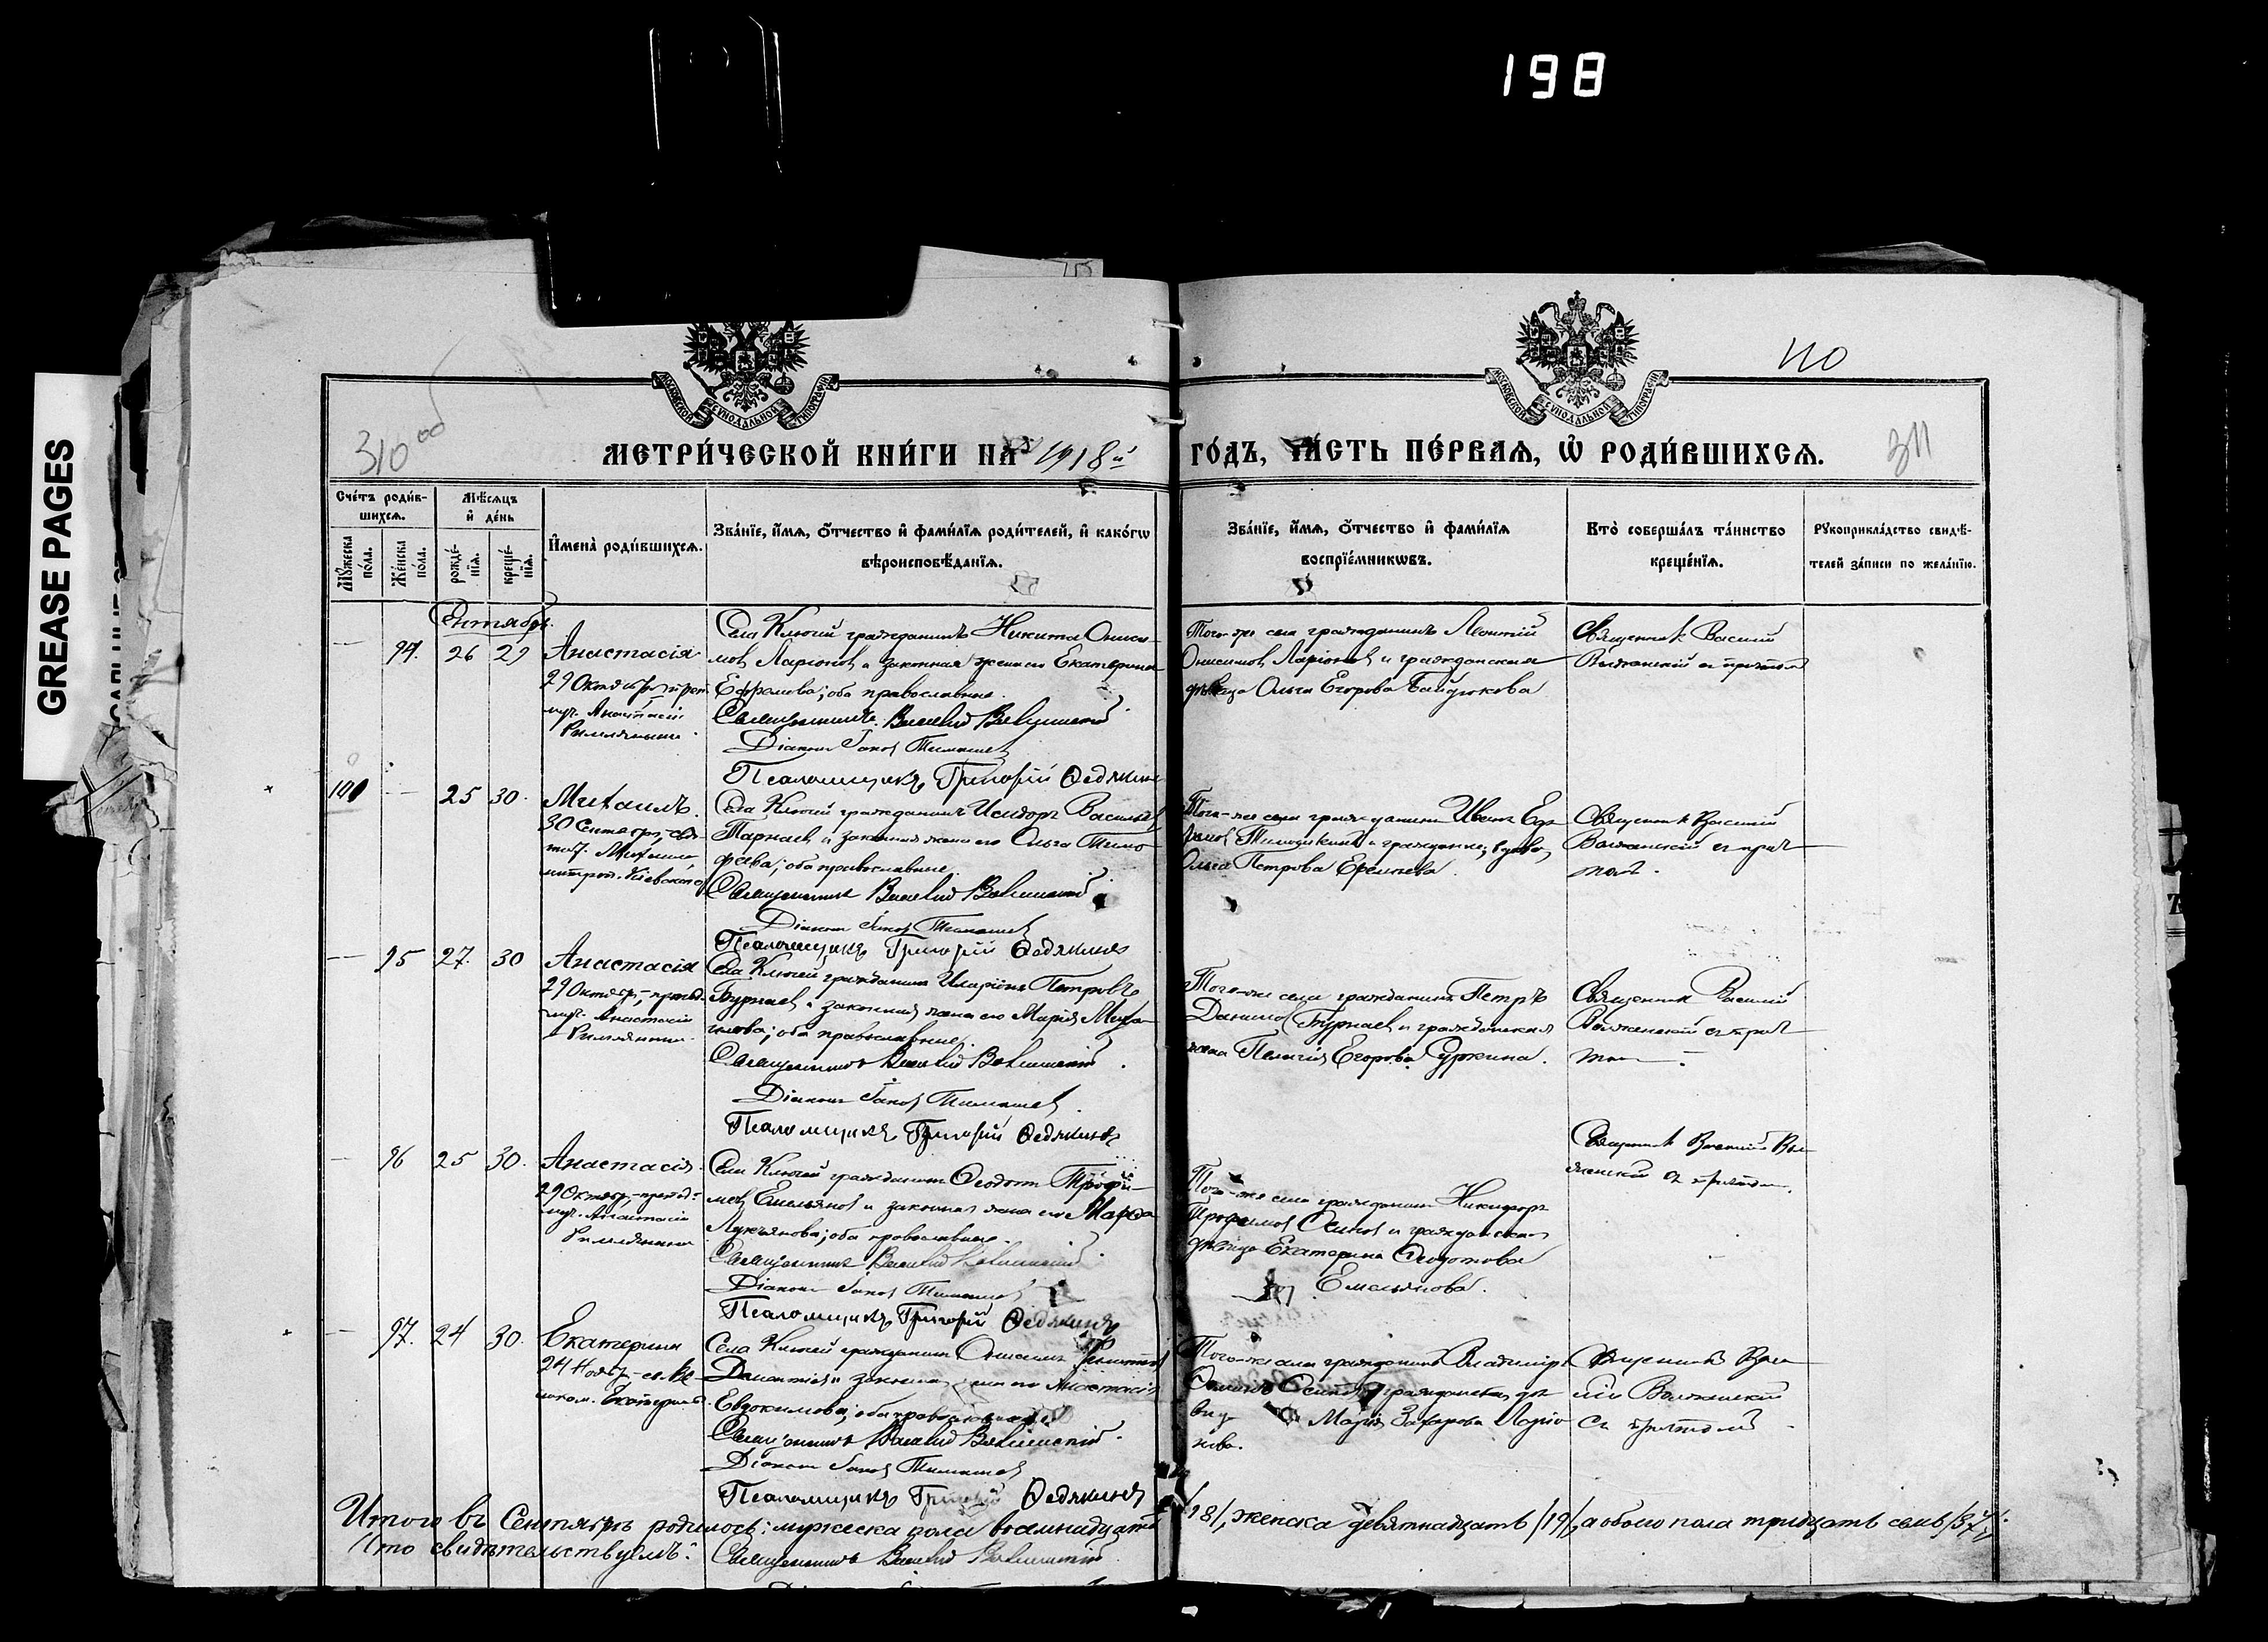 198
GREASE PAGES
310 об
110
311
МОСКОВСКОЙ СУНОДАЛЬНОЙ ТИПОГРАФІИ
МОСКОВСКОЙ СУНОДАЛЬНОЙ ТИПОГРАФІИ
МЕТРИ́ЧЕСКОЙ КНИ́ГИ НА 1918й ГО́ДЪ, ЧА́СТЬ ПЕ́РВАѦ, Ѡ РОДИ́ВШИХСѦ.
Сче́тъ роди́в-
шихсѧ.
Мѣ́сѧцъ
и҆ де́нь
Мꙋ́жеска по́ла.
Же́нска по́ла.
рожде́-нїѧ.
креще́-нїѧ.
И҆мена̀ роди́вшихсѧ.
Зва́нїе, и҆́мѧ, ѻ҆́тчество и҆ фами́лїѧ роди́телей, и҆ како́гѡ
вѣроисповѣ́данїѧ.
Зва́нїе, и҆́мѧ, ѻ҆́тчество и҆ фами́лїѧ
воспрїе́мникѡвъ.
Кто̀ соверша́лъ та́инство
креще́нїѧ.
Рꙋкоприкла́дство свидѣ́-
телей за́писи по жела́нїю.
Сентябрь.
— 94. 26 29 Анастасія
29 Октября, преп.
муч. Анастасіи
Римляныни.
Села Ключей гражданинъ Никита Ониси-
мов Ларіоновъ и законная жена его Екатерина
Ефремова; оба православные.
Священникъ Василій
Діаконъ Іаковъ Тимашев
Псаломщикъ Григорій Ѳедякинъ
Того-же села гражданинъ Леонтій
Онисимовъ Ларіоновъ и гражданская
дѣвица Ольга Егорова Байдюкова
Священник Василій
с причтом
100 — 25 30. Михаилъ.
30 Сентября, свя-
тит. Михаила,
митроп. Кіевскаго
Села Ключей гражданинъ Исидоръ Васильев
Тарнаев и законная жена его Ольга Тимо-
феева; оба православные.
Священникъ Василій
Діаконъ Іаковъ Тимашев
Псаломщикъ Григорій Ѳедякинъ
Того-же села гражданинъ Иванъ
и гражданка, вдова,
Ольга Петрова Еремеева.
Священник Василій
с прич-
том.
— 95 27. 30 Анастасія
29 Октября, препод.
муч. Анастасіи
Римляныни.
Села Ключей гражданинъ Иларіонъ Петровъ
Бурнаев и законная жена его Марія Миха-
илова; оба православные.
Священникъ Василій
Діаконъ Іаковъ Тимашев
Псаломщикъ Григорій Ѳедякинъ
Того-же села гражданинъ Петръ
Данилов Бурнаев и гражданская
жена Пелагія Егорова Суркина.
Священник Василій
с прич-
том.
— 96 25 30. Анастасія.
29 Октября, препод.
муч. Анастасіи
Римляныни
Села Ключей гражданинъ Ѳеодотъ Трофи-
мов Емельянов и законная жена его Марѳа
Лукьянова; оба православные.
Священникъ Василій
Діаконъ Іаковъ Тимашев
Псаломщикъ Григорій Ѳедякинъ
Того-же села гражданинъ Никифоръ
Трофимов Осипов и гражданская
дѣвица Екатерина Ѳеодотова
Емельянова.
Священник Василій
с причтом.
— 97. 24 30. Екатерина
24 Ноября, св. Ве-
ликом. Екатерины.
Села Ключей гражданинъ Онисимъ
и законная жена его Анастасія
Евдокимова; оба православные
Священникъ Василій
Діаконъ Іаковъ Тимашев
Псаломщикъ Григорій Ѳедякинъ
Того-же села гражданинъ Владиміръ
Осипов и гражданская дѣ-
вица Марія Захарова Ларіо-
нова.
Священникъ Васи-
лій
съ причтомъ
Итого въ Сентябрѣ родилось: мужеска пола восемнадцать /18/, женска девятнадцать /19/, а обоего пола тридцать семь /37/.
Что свидѣтельствуемъ:
Священникъ Василій